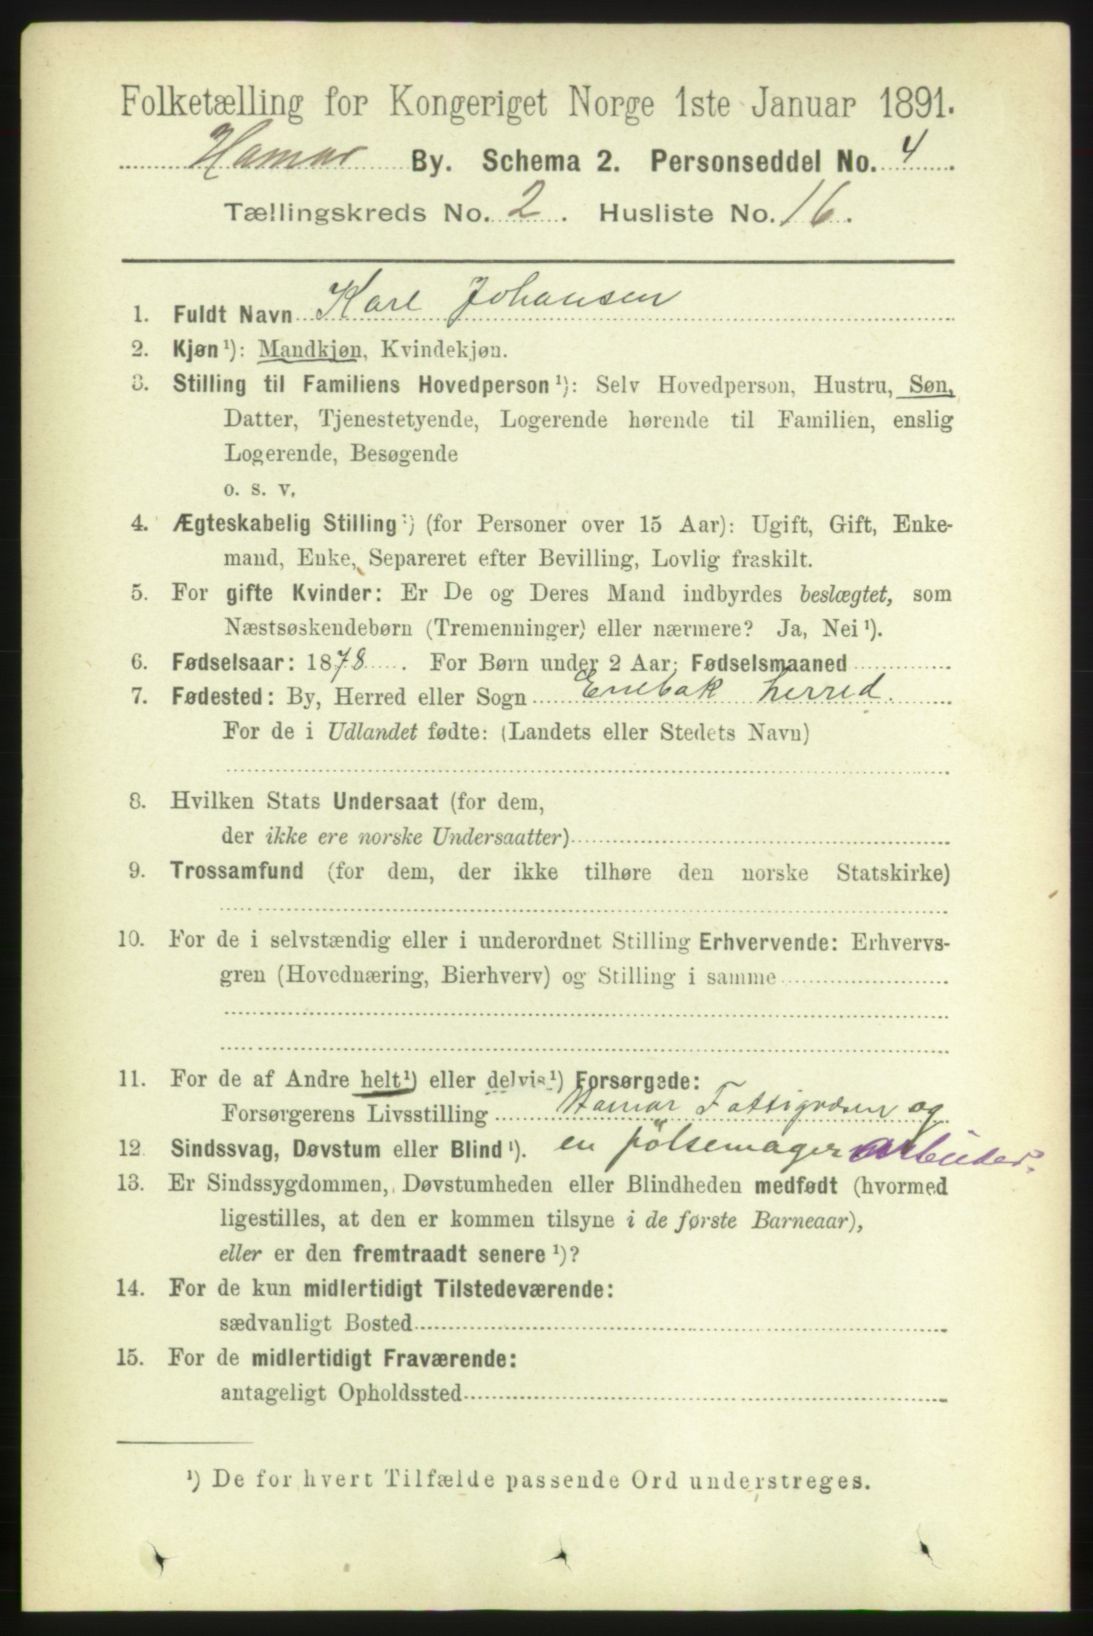 Folketælling for Kongeriget Norge 1ste Januar 1891.
Hamar By. Schema 2. Personseddel No. 4
Tællingskreds No. 2. Husliste No. 16.
1. Fuldt Navn Karl Johansen
2. Kjøn ¹): Mandkjøn, Kvindekjøn.
3. Stilling til Familiens Hovedperson ¹): Selv Hovedperson, Hustru, Søn,
Datter, Tjenestetyende, Logerende hørende til Familien, enslig
Logerende, Besøgende
o. s. v.
4. Ægteskabelig Stilling ¹) (for Personer over 15 Aar): Ugift, Gift, Enke-
mand, Enke, Separeret efter Bevilling, Lovlig fraskilt.
5. For gifte Kvinder: Er De og Deres Mand indbyrdes beslægtet, som
Næstsøskendebørn (Tremenninger) eller nærmere? Ja, Nei ¹).
6. Fødselsaar: 1878. For Børn under 2 Aar: Fødselsmaaned
7. Fødested: By, Herred eller Sogn Enebak herred.
For de i Udlandet fødte: (Landets eller Stedets Navn)
8. Hvilken Stats Undersaat (for dem,
der ikke ere norske Undersaatter)
9. Trossamfund (for dem, der ikke tilhøre den norske Statskirke)
10. For de i selvstændig eller i underordnet Stilling Erhvervende: Erhvervs-
gren (Hovednæring, Bierhverv) og Stilling i samme
11. For de af Andre helt ¹) eller delvis ¹) Forsørgede:
Forsørgerens Livsstilling Hamar Fattigvæsen og
12. Sindssvag, Døvstum eller Blind ¹). en pølsemagerarbeider.
13. Er Sindssygdommen, Døvstumheden eller Blindheden medfødt (hvormed
ligestilles, at den er kommen tilsyne i de første Barneaar),
eller er den fremtraadt senere ¹)?
14. For de kun midlertidigt Tilstedeværende:
sædvanligt Bosted
15. For de midlertidigt Fraværende:
antageligt Opholdssted
¹) De for hvert Tilfælde passende Ord understreges.